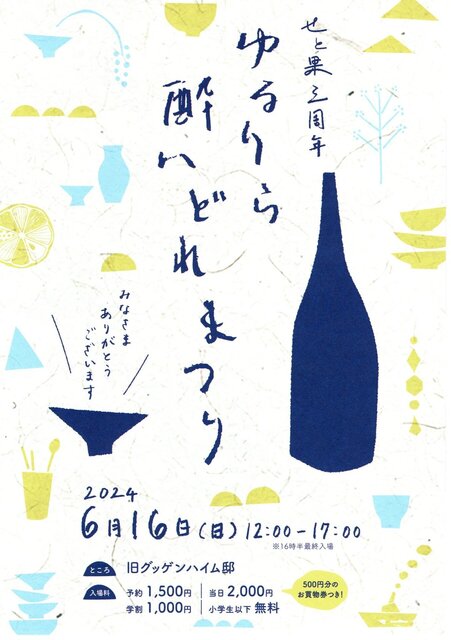 せと果三周年
ゆるりら
酔ハどれまつり
みなさま
ありがとう
ございます
2024
6月16日(日)12:00-17:00
※16時半最終入場
ところ 旧グッゲンハイム邸
入場料 予約 1,500円 当日 2,000円
学割 1,000円 小学生以下 無料
500円分の
お買物券つき!